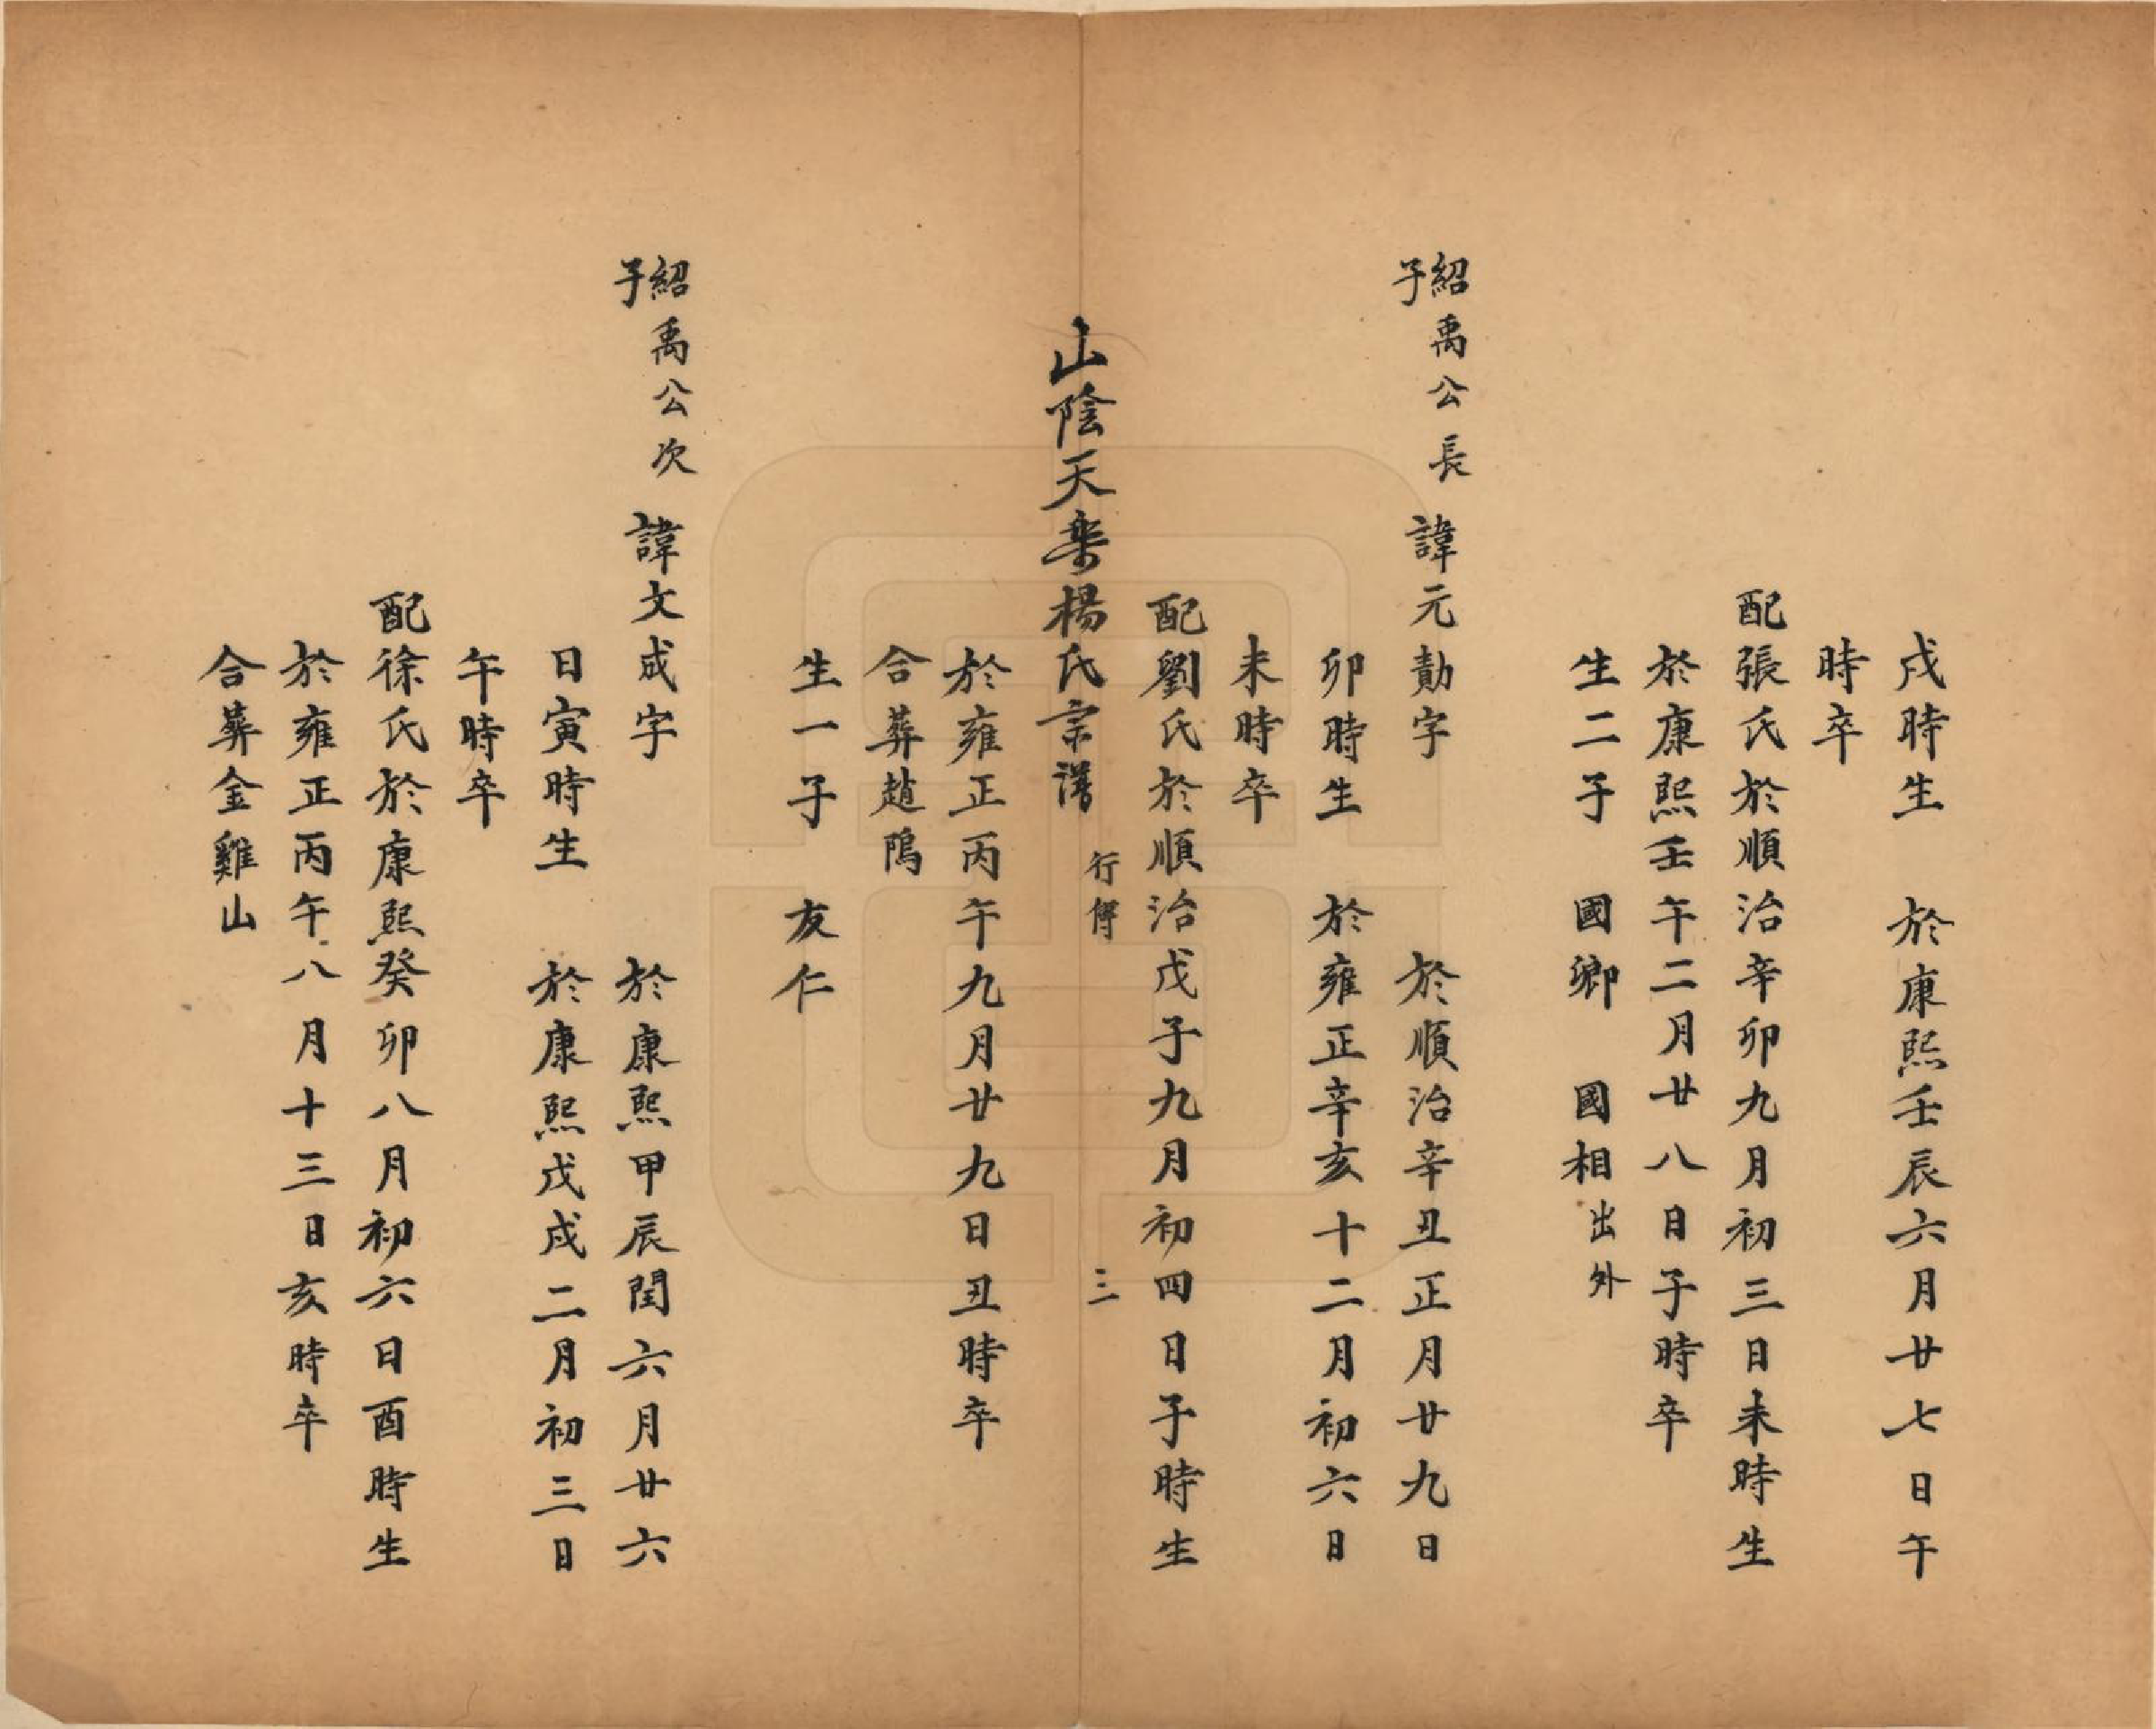 戌時生　於康熙壬辰六月廿七日午
時卒
配張氏於順治辛卯九月初三日未時生
於康熙壬午二月廿八日子時卒
生二子　國卿　國相出外
紹禹公長子　諱元勣字　於順治辛丑正月廿九日
卯時生　於雍正辛亥十二月初六日
未時卒
配劉氏於順治戊子九月初四日子時生
山陰天樂楊氏宗譜　行傳　三
於雍正丙午九月廿九日丑時卒
合葬趙隖
生一子　友仁
紹禹公次子　諱文成字　於康熙甲辰閏六月廿六
日寅時生　於康熙戊戌二月初三日
午時卒
配徐氏於康熙癸卯八月初六日酉時生
於雍正丙午八月十三日亥時卒
合葬金雞山